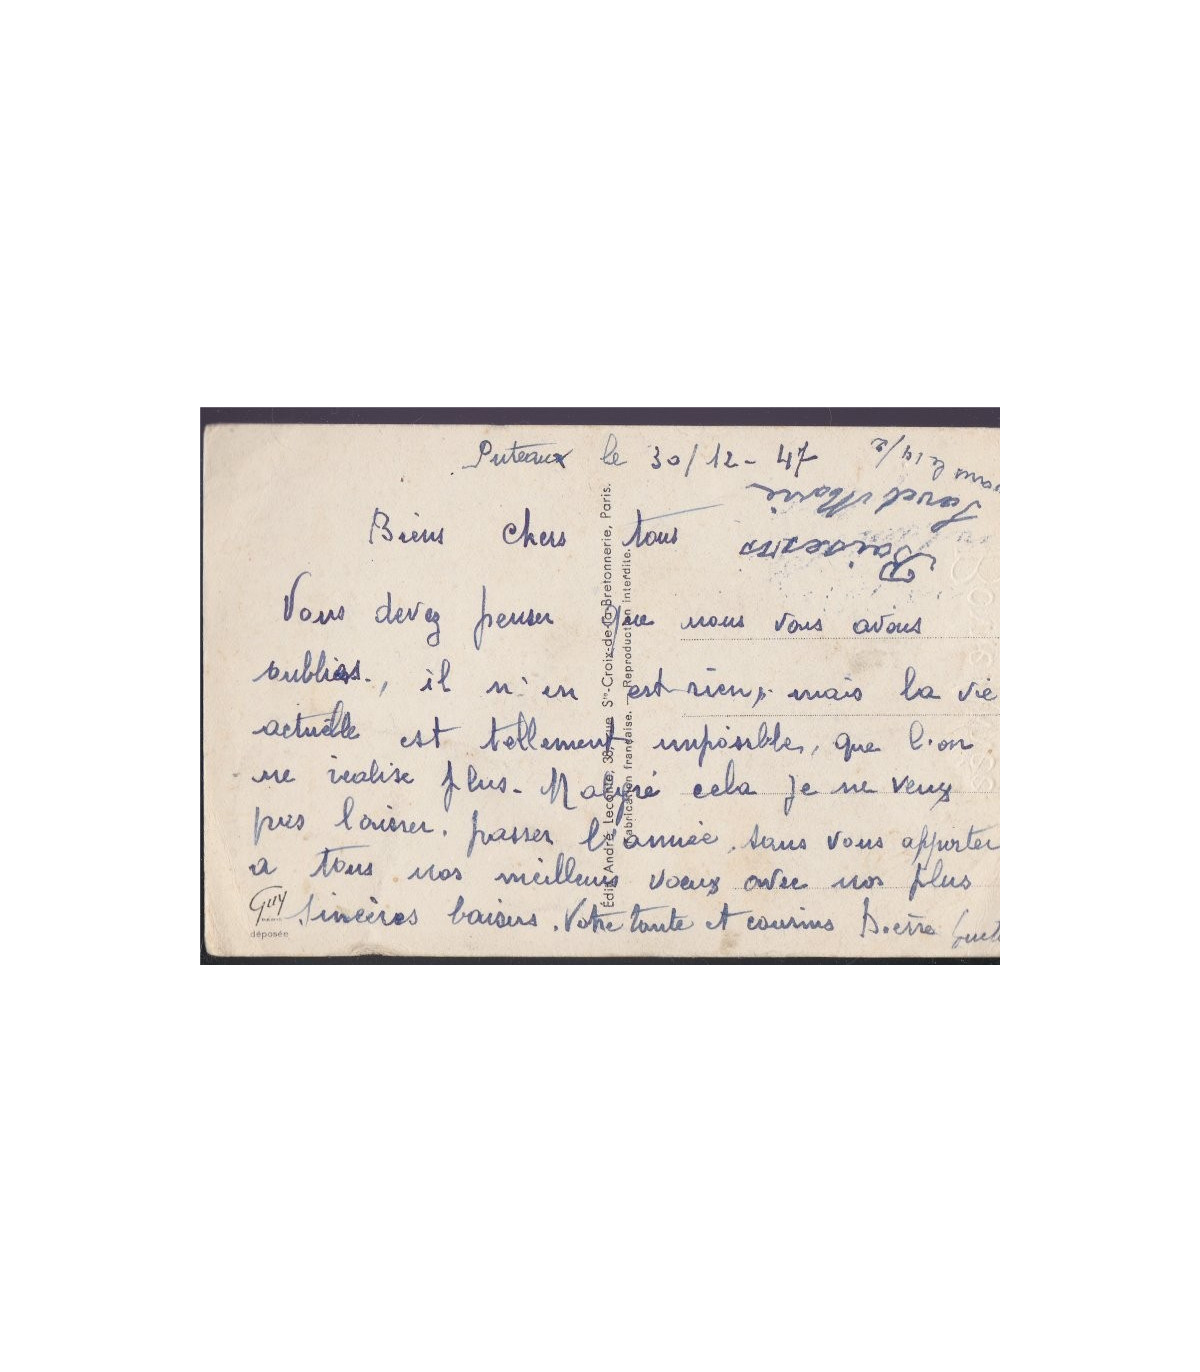 Puteaux le 30/12-47
Biens chers tous
Vous devez penser que nous vous avons
oublies, il n'en est rien, mais la vie
actuelle est tellement impossible, que l'on
ne realise plus. Malgré cela je ne veux
pas laisser passer l'année sans vous apporter
a tous nos meilleurs voeux avec nos plus
sincères baisers. Votre tante et cousins Pierre
Baisers
Marie
le 14/2
Guy
déposée
Édit. André Leconte, 38, rue Ste-Croix-de-la-Bretonnerie, Paris.
Fabrication française. — Reproduction interdite.